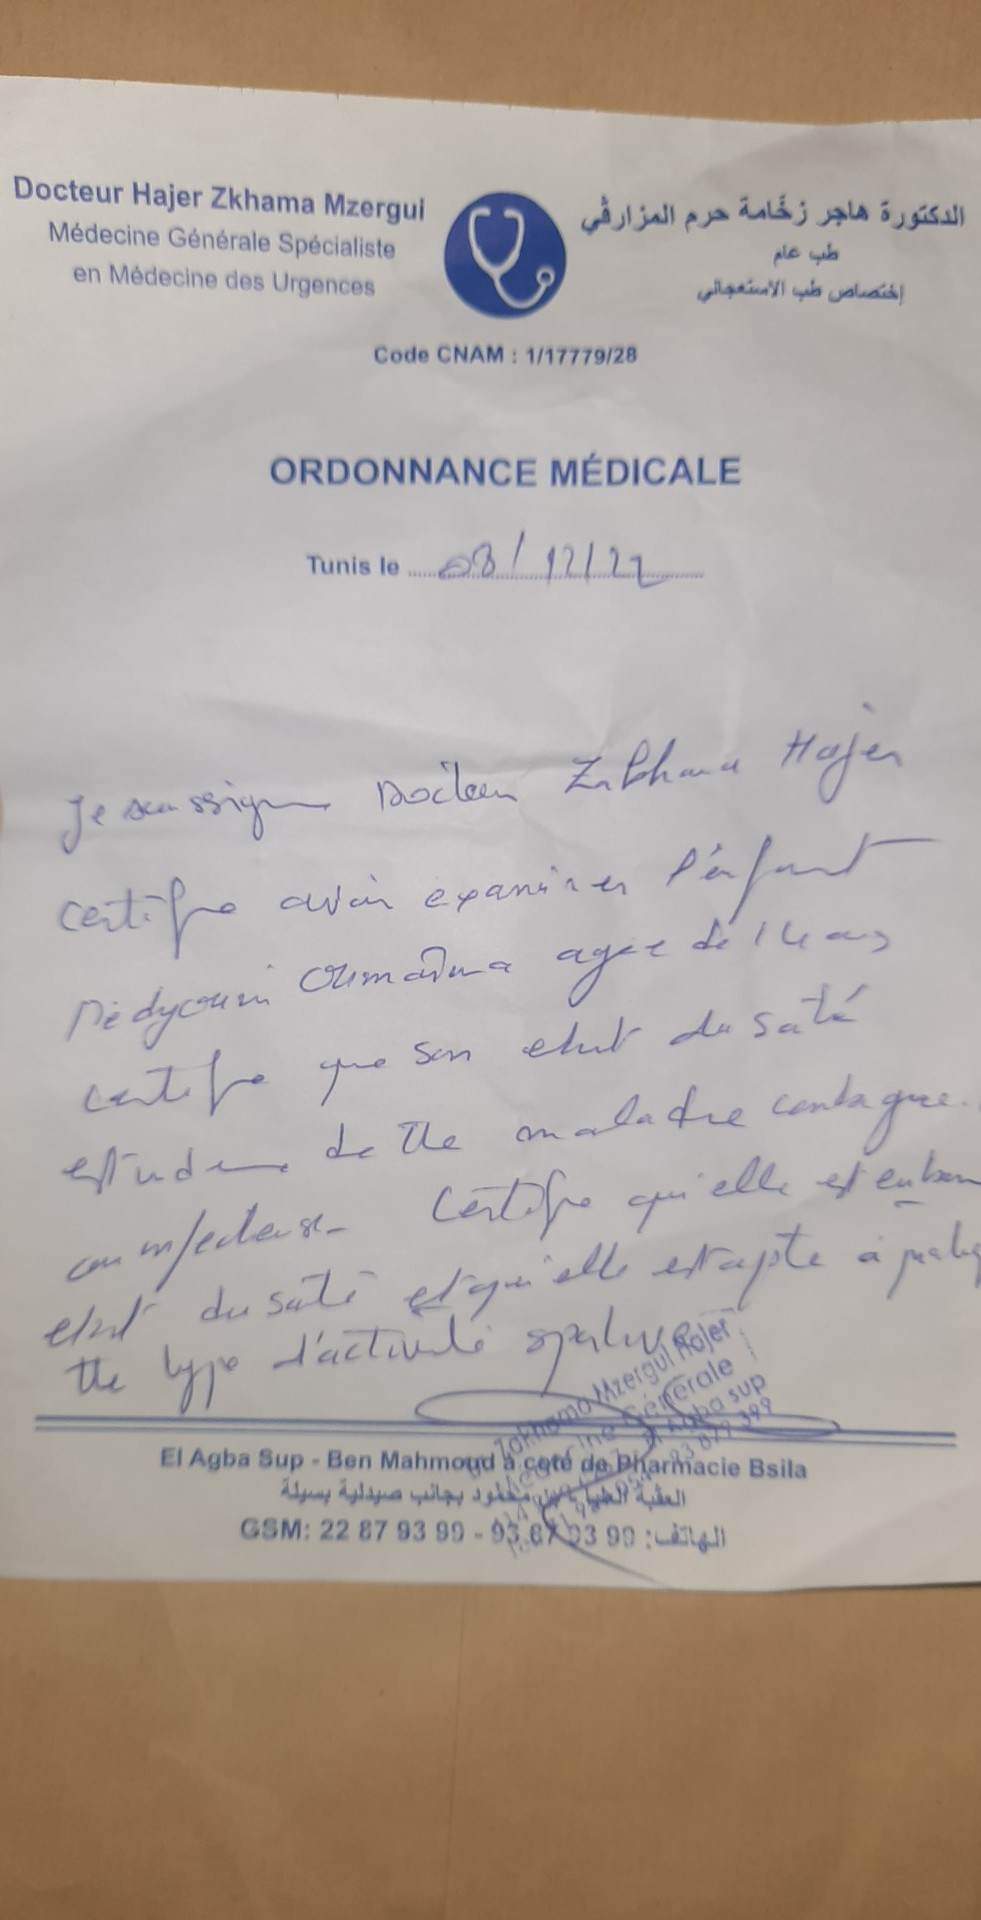 Docteur Hajer Zkhama Mzergui
Médecine Générale Spécialiste
en Médecine des Urgences
الدكتورة هاجر زخّامة حرم المزارڤي
طب عام
إختصاص طب الاستعجالي
Code CNAM : 1/17779/28
ORDONNANCE MÉDICALE
Tunis le 08/12/22
Je soussigne Docteur Zakhama Hajer
certifie avoir examiner l'enfant
Oumaïma agee de 14 ans
certifie que son etat du saté
est indemne de tte maladie contagieuse
ou infectieuse. Certifie qu'elle est en bon
etat du saté et qu'elle est apte à
tte type d'activité sportive
Zakhama Mzergui Hajer
Générale
El Agba Sup - Ben Mahmoud à coté de Pharmacie Bsila
العقبة العليا بن محمود بجانب صيدلية بسيلة
GSM: 22 87 93 99 - 93 87 93 99 :الهاتف